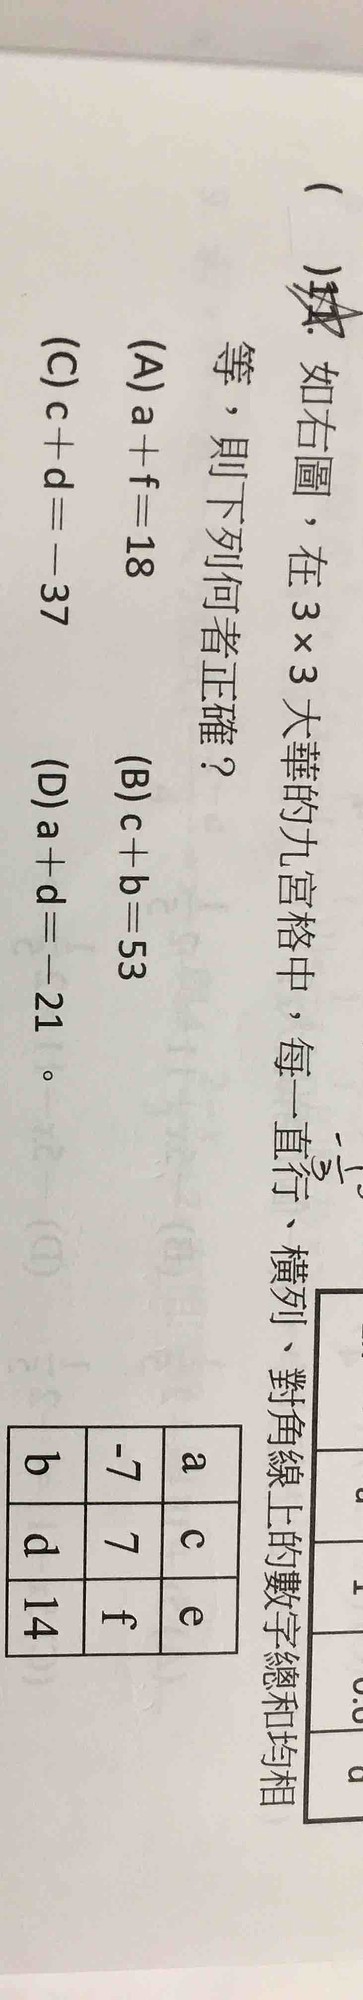 ( )11. 如右圖，在 3×3 大華的九宮格中，每一直行、橫列、對角線上的數字總和均相
等，則下列何者正確？
(A) a＋f＝18 (B) c＋b＝53
(C) c＋d＝－37 (D) a＋d＝－21 。
a c e
-7 7 f
b d 14